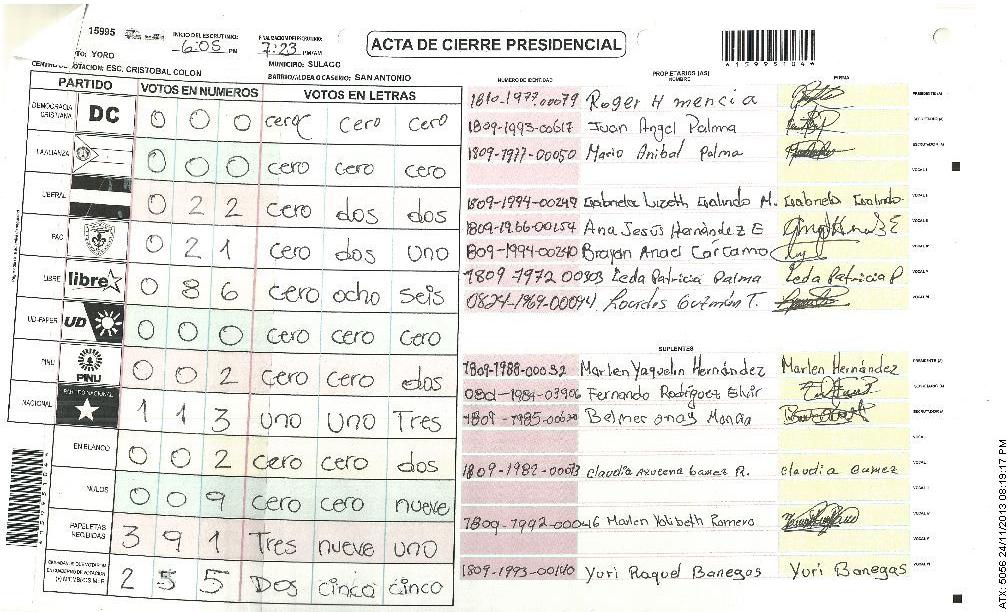 15995
INICIO DEL ESCRUTINIO:
6:05 PM
FINALIZACION DEL ESCRUTINIO:
7:23 PM/AM
ACTA DE CIERRE PRESIDENCIAL
TO: YORO
MUNICIPIO: SULACO
VOTACION: ESC. CRISTOBAL COLON
BARRIO/ALDEA O CASERIO: SAN ANTONIO
PARTIDO VOTOS EN NUMEROS VOTOS EN LETRAS
DEMOCRACIA CRISTIANA DC 0 0 0 cero cero cero
LA ALIANZA 0 0 0 cero cero cero
LIBERAL 0 2 2 cero dos dos
PAC 0 2 1 cero dos uno
LIBRE libre 0 8 6 cero ocho seis
UD-FAPER UD 0 0 0 cero cero cero
PINU PINU 0 0 2 cero cero dos
NACIONAL PARTIDO NACIONAL 1 1 3 uno uno Tres
EN BLANCO 0 0 2 cero cero dos
NULOS 0 0 9 cero cero nueve
PAPELETAS RECIBIDAS 3 9 1 Tres nueve uno
2 5 5 Dos cinco cinco
NUMERO DE IDENTIDAD PROPIETARIOS (AS) NOMBRE FIRMA
1810-1977-00079 Roger H mencia PRESIDENTE(A)
1809-1993-00617 Juan Angel Palma SECRETARIO (A)
1809-1977-00050 Mario Anibal Palma ESCRUTADOR (A)
VOCAL I
1809-1994-00249 Gabriela Lizeth Galindo M. Gabriela Galindo
1809-1966-00154 Ana Jesús Hernández E
1809-1994-00240 Brayan Anael Cárcamo
1809 1972 00303 Leda Patricia Palma Leda Patricia P
0824-1969-00094 Lourdes Guzmán T.
SUPLENTES
1809-1988-00032 Marlen Yaquelin Hernández Marlen Hernández PRESIDENTE (A)
0801-1984-03906 Fernando Rodríguez Elvir SECRETARIO (A)
ESCRUTADOR/A
1809-1982-00013 Claudia Azucena Gamez R. Claudia Gamez
1809-1992-00046 Marlen Yolibeth Romero
1809-1993-00140 Yuri Raquel Banegas Yuri Banegas
ATX: 5056 24/11/2013 08:19:17 PM